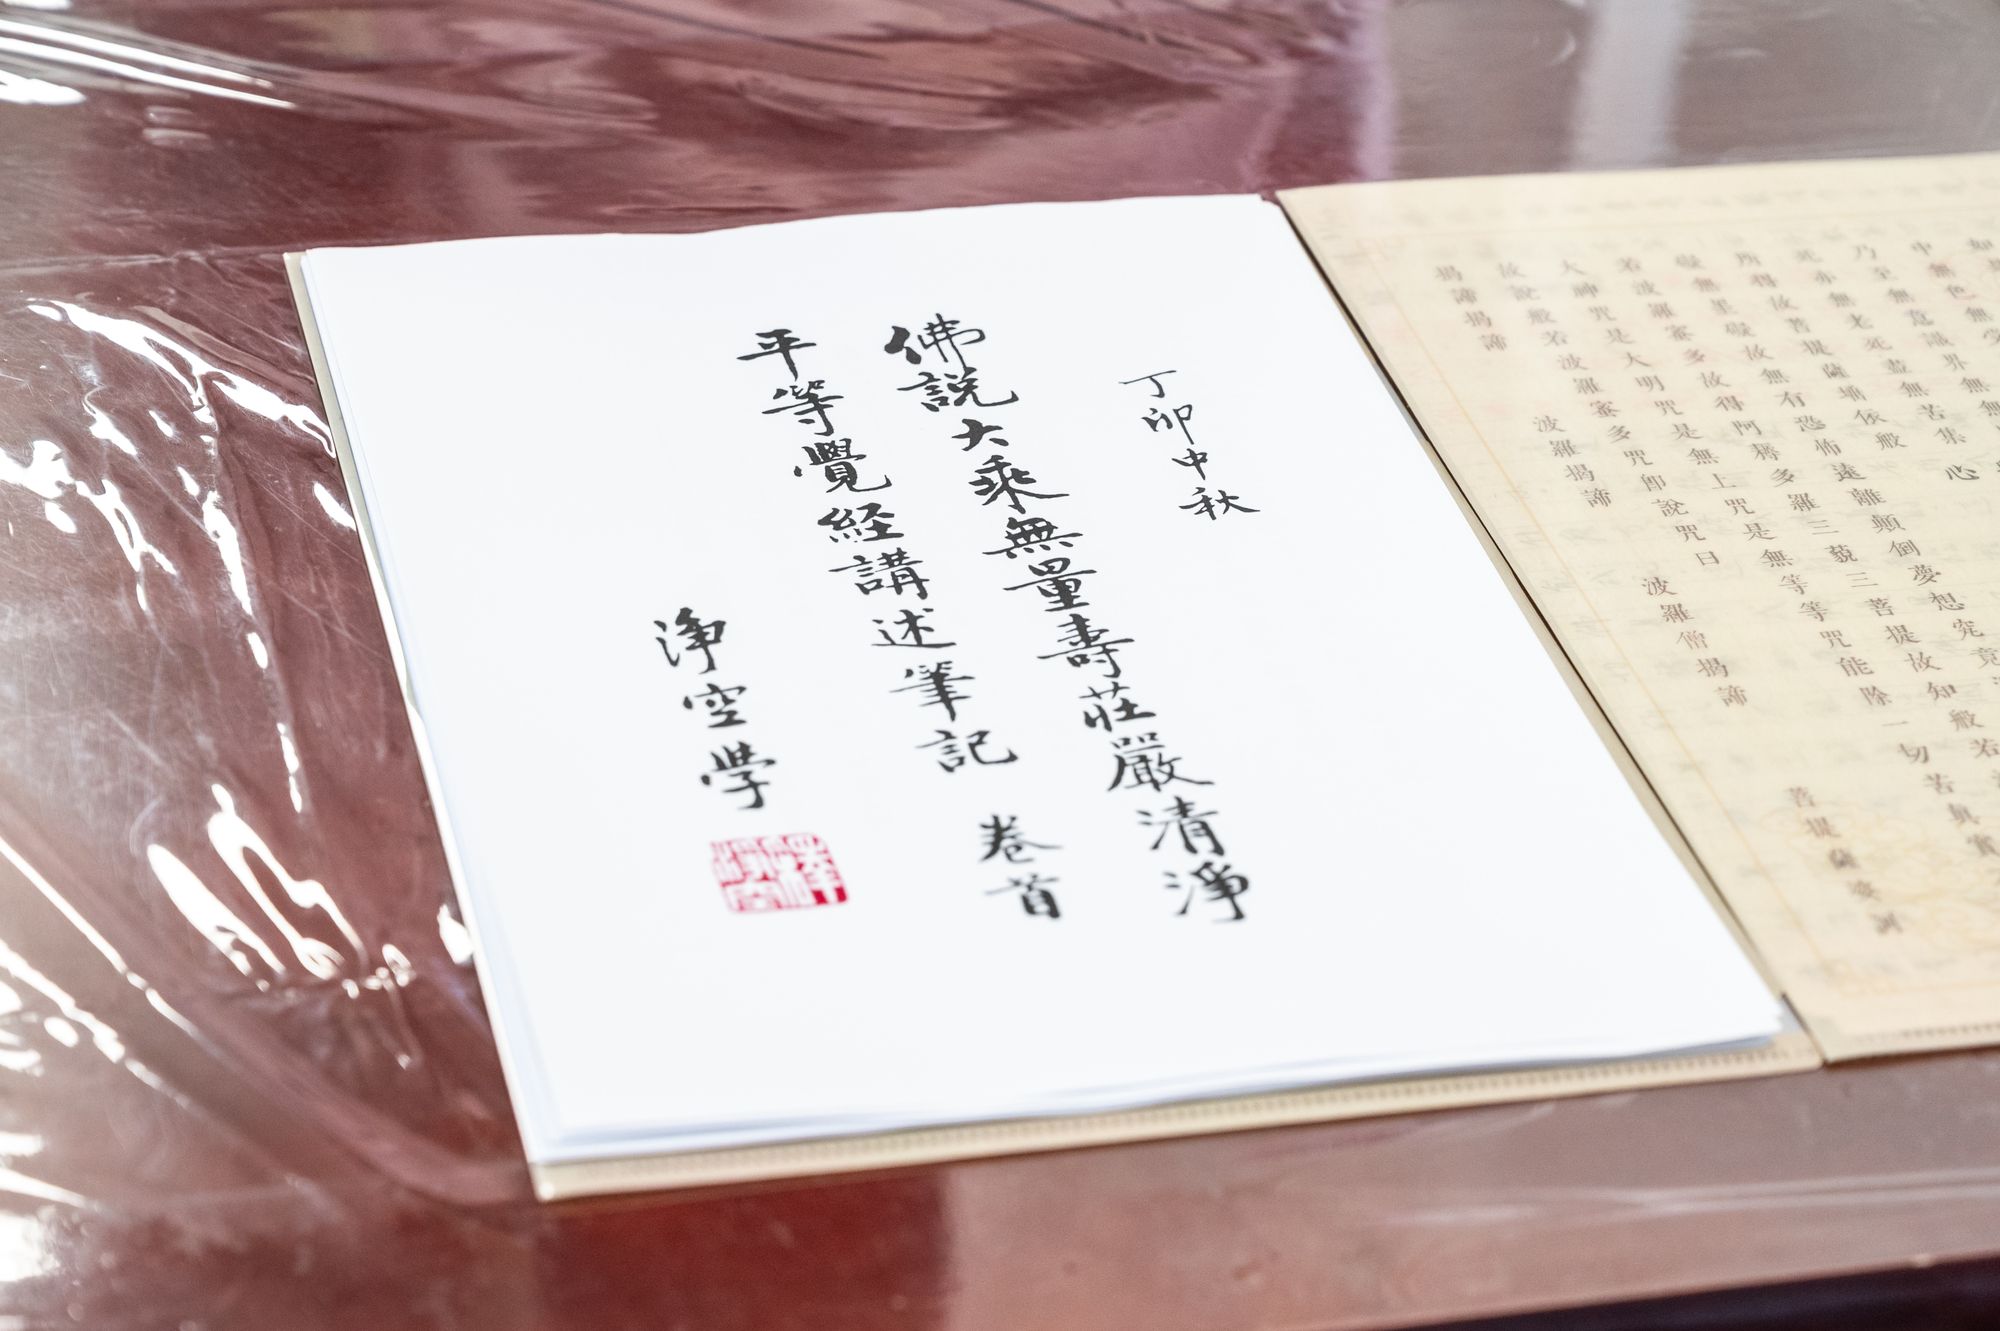 丁卯中秋
佛說大乘無量壽莊嚴清淨
平等覺経講述筆記 卷首
淨空学
中無色無受
乃至無意識界無
死亦無老死盡無苦集
所得故菩提薩埵依般
礙無罣礙故無有恐怖遠離顛倒夢想究竟
若波羅蜜多故得阿耨多羅三藐三菩提故知般若
大神咒是大明咒是無上咒是無等等咒能除一切苦真實
故說般若波羅蜜多咒即說咒曰
揭諦揭諦 波羅揭諦 波羅僧揭諦 菩提薩婆訶